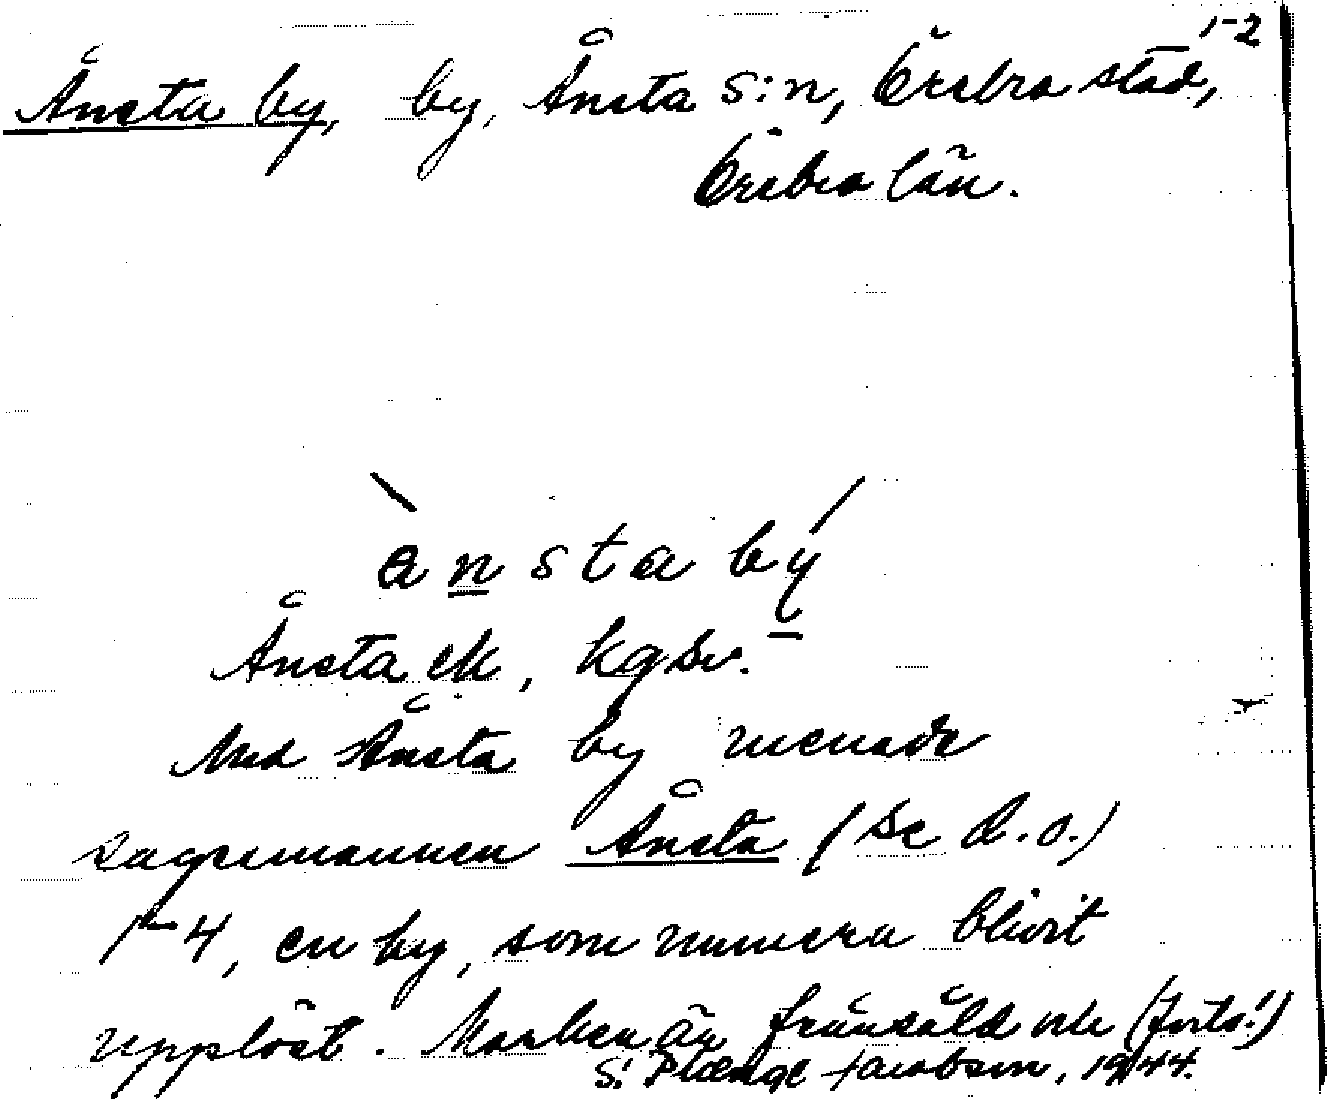 1-2
Ånsta by, by, Ånsta s:n, Örebro stad,
Örebro län.
ansta by
Ånsta ek, kgsv.
Med Ånsta by menade
sagesmannen Ånsta (se d.o.)
1-4, en by, som numera blivit
upplöst. Marken är frånsåld och (forts.!)
S. Plænge Jacobson, 1944.